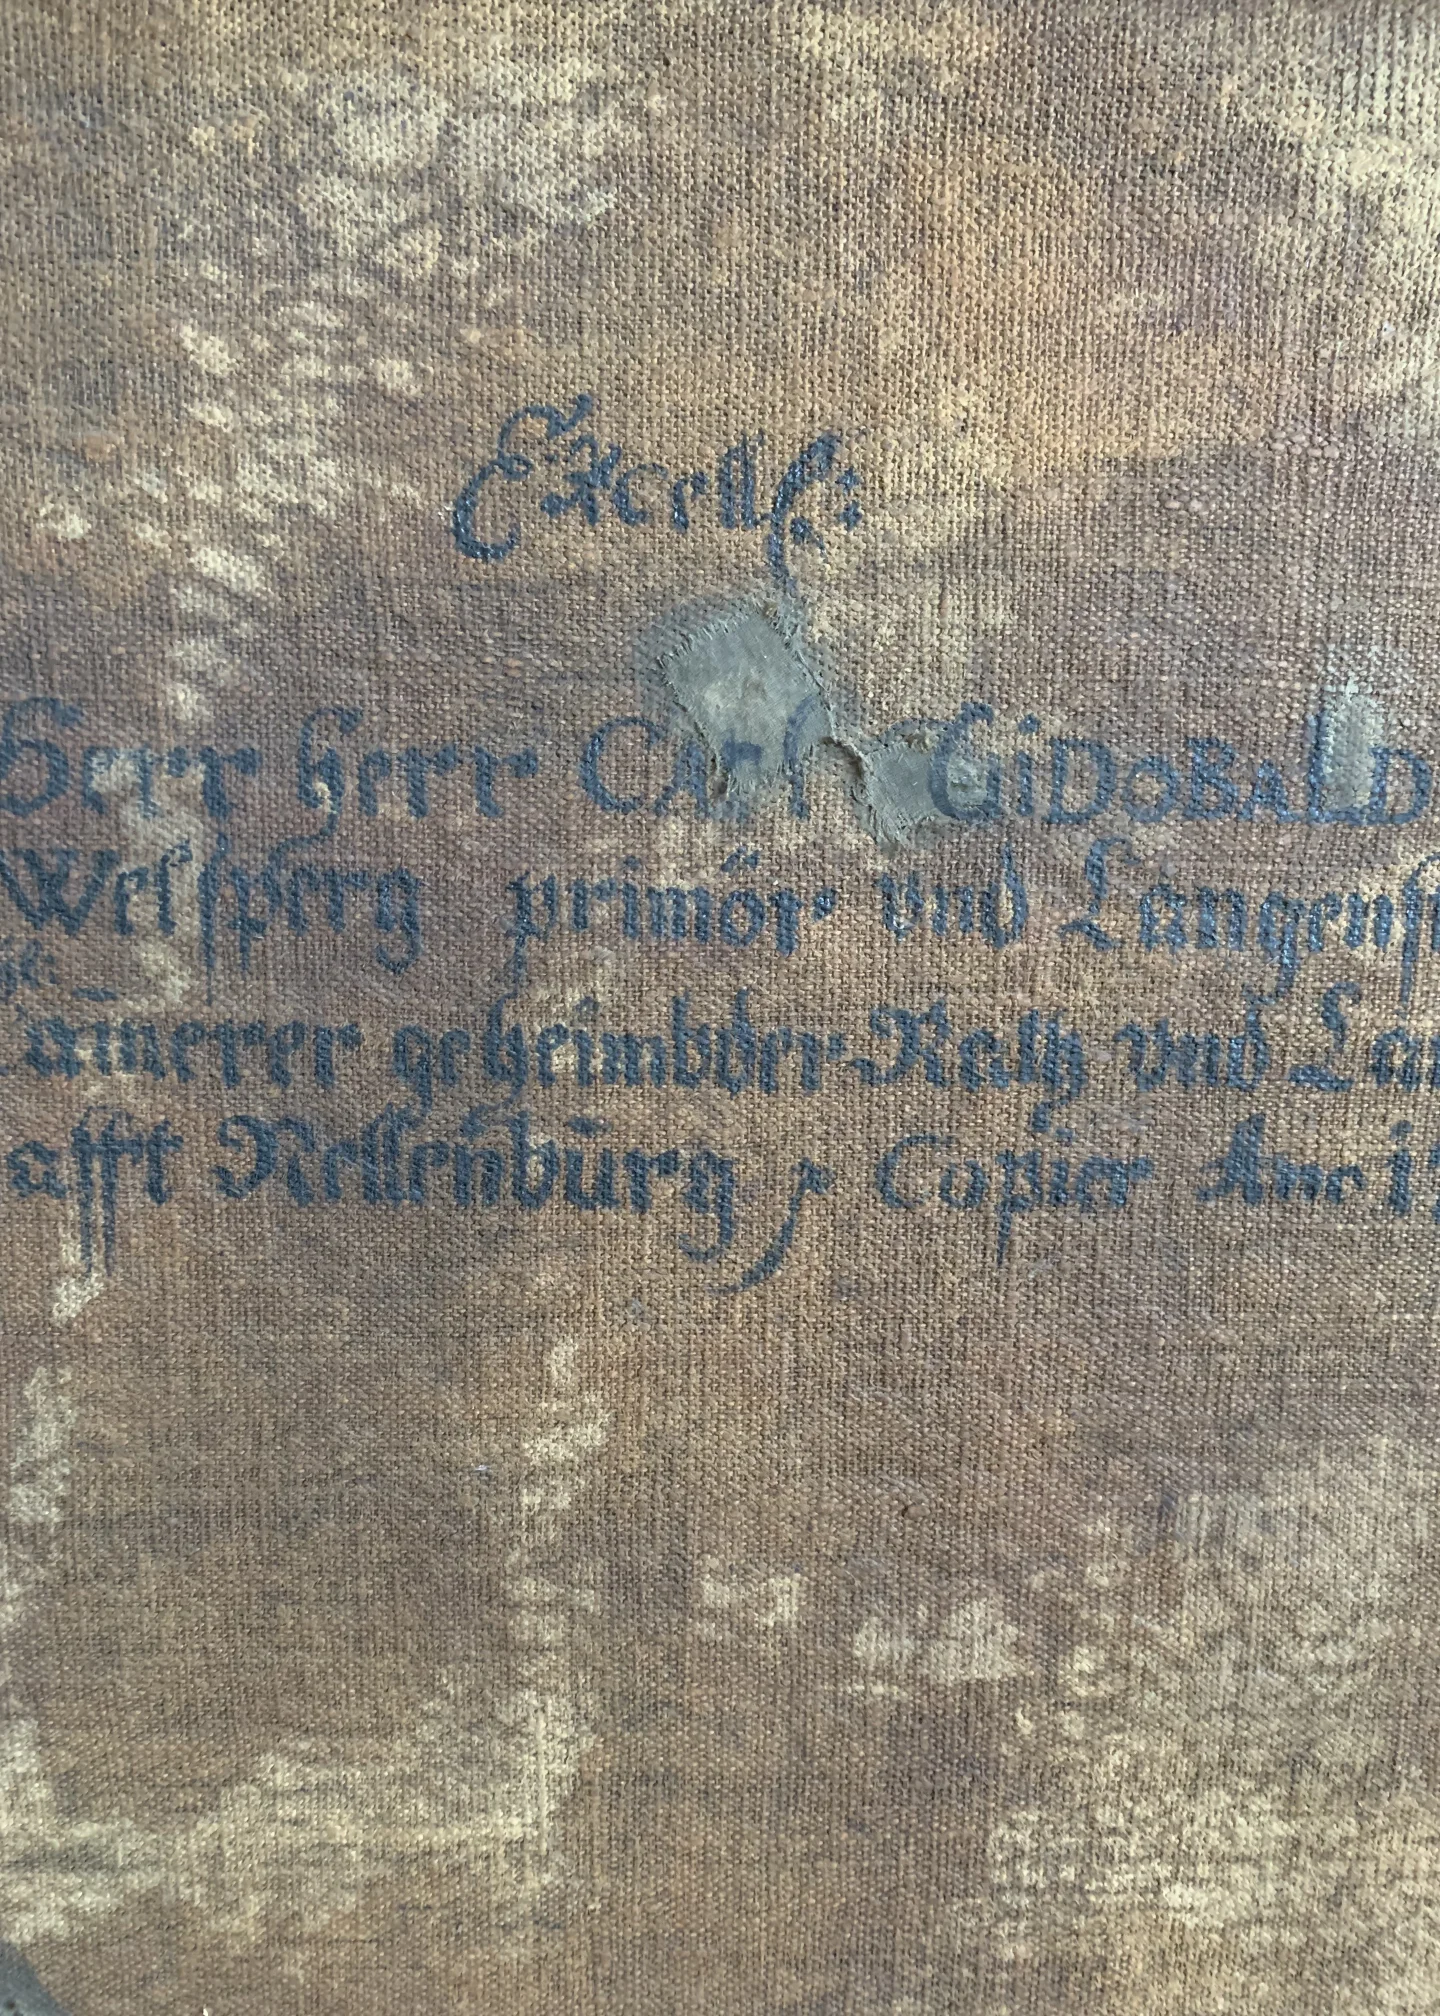 Excell:
Herr herr CArl GiDOBALD
Welsperg primör vnd Langenst
etc:
Camerer geheimbder Rath vnd Lan
afft Nellenburg, Copier Año 1